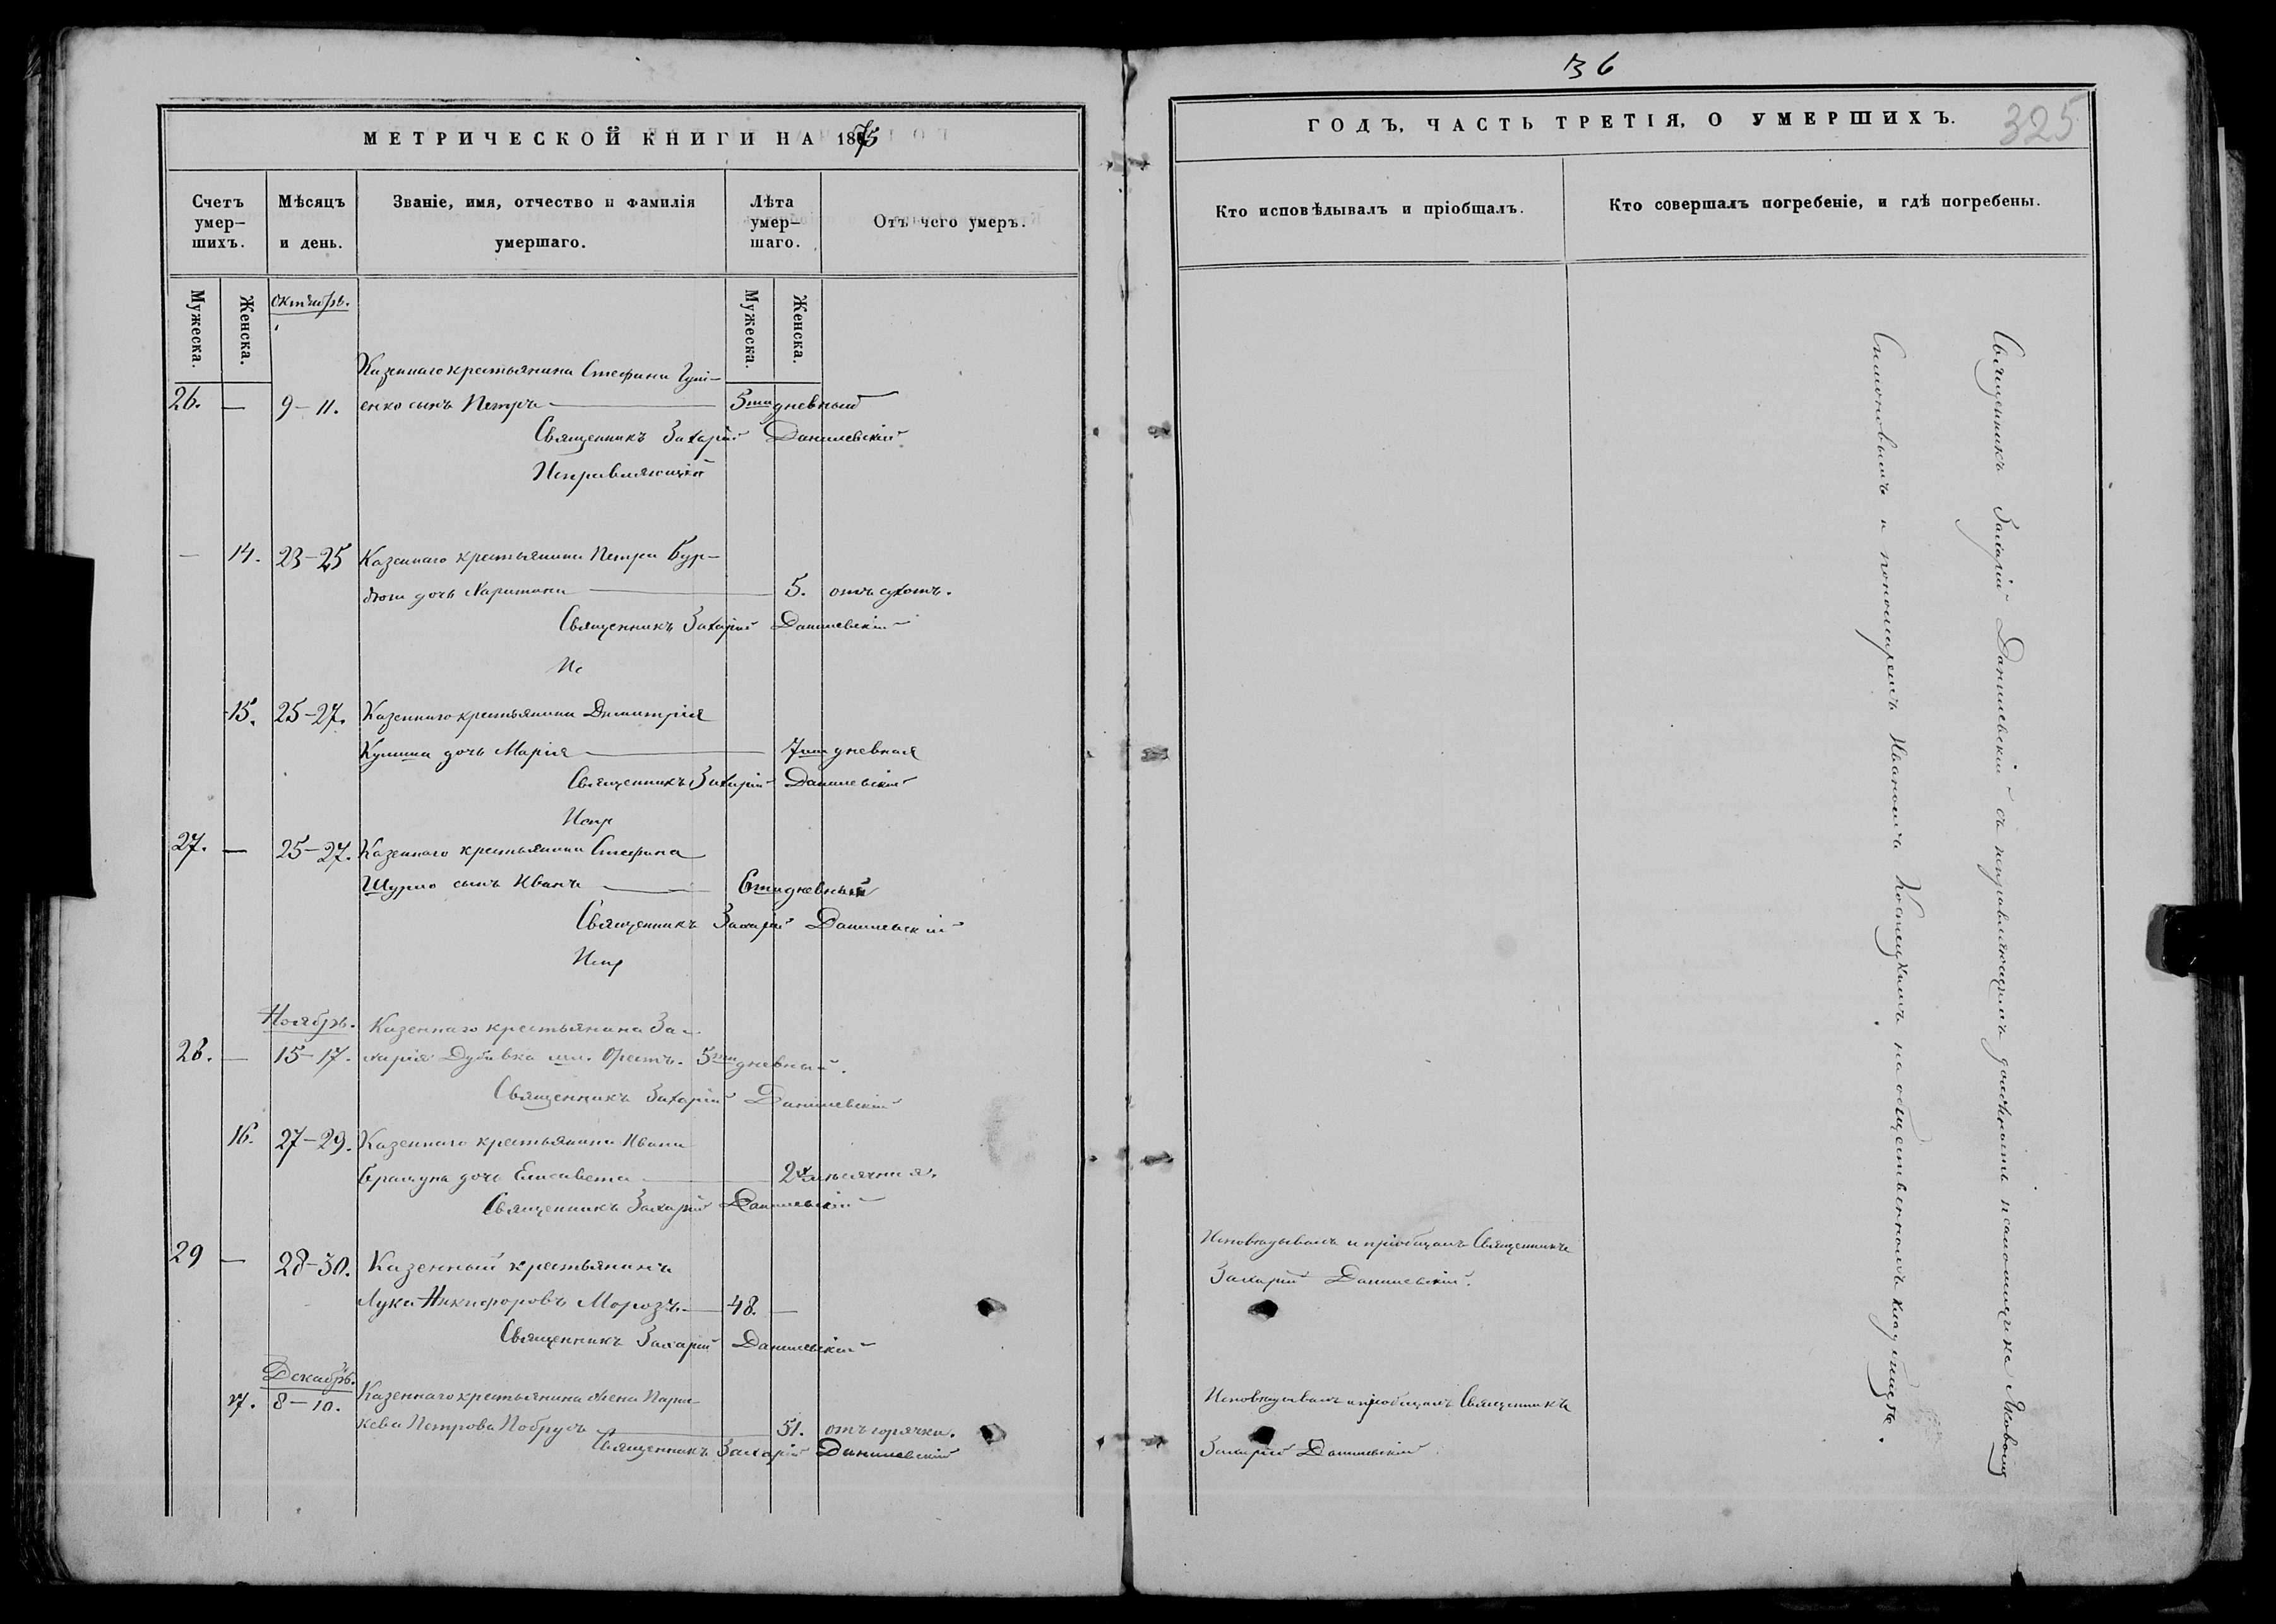 МЕТРИЧЕСКОЙ КНИГИ НА 1875
Счетъ умер-шихъ.
Мѣсяцъ и день.
Званіе, имя, отчество и фамилія умершаго.
Лѣта умер-шаго.
Отъ чего умеръ.
Мужеска.
Женска.
Октябрь.
Мужеска.
Женска.
Казеннаго крестьянина Стефана
26. — 9–11. енко сынъ Петръ — 5ти дневный
Священникъ Захарій Данилевскій
Исправляющій
— 14. 23–25 Казеннаго крестьянина Петра Бур-
дочь Харитина — 5. отъ сухотъ.
Священникъ Захарій Данилевскій
Ис
15. 25–27. Казеннаго крестьянина Димитрія
Кулиша дочь Марія — 7ми дневная
Священникъ Захарій Данилевскій
Испр
27. — 25–27. Казеннаго крестьянина Стефана
Шурло сынъ Иванъ — 6ти дневный
Священникъ Захарій Данилевскій
Испр
Ноябрь. Казеннаго крестьянина За-
28. — 15–17. харія Орестъ. 5ти дневный.
Священникъ Захарій Данилевскій
16. 27–29. Казеннаго крестьянина Ивана
дочь Елисавета — 2хъ мѣсячная.
Священникъ Захарій Данилевскій
29 — 28–30. Казенный крестьянинъ
Лука Никифоровъ Морозъ — 48. —
Священникъ Захарій Данилевскій
Декабрь.
17. 8–10. Казеннаго крестьянина жена Парас-
кева Петрова — 51. отъ горячки.
Священникъ Захарій Данилевскій
36
ГОДЪ, ЧАСТЬ ТРЕТІЯ, О УМЕРШИХЪ.
325
Кто исповѣдывалъ и пріобщалъ.
Кто совершалъ погребеніе, и гдѣ погребены.
Исповѣдывалъ и пріобщалъ Священникъ
Захарій Данилевскій.
Исповѣдывалъ и пріобщалъ Священникъ
Захарій Данилевскій
Священникъ Захарій Данилевскій съ исправляющимъ должность псаломщика Яковомъ
Симоновымъ и пономаремъ Иваномъ на общественномъ кладбищѣ.